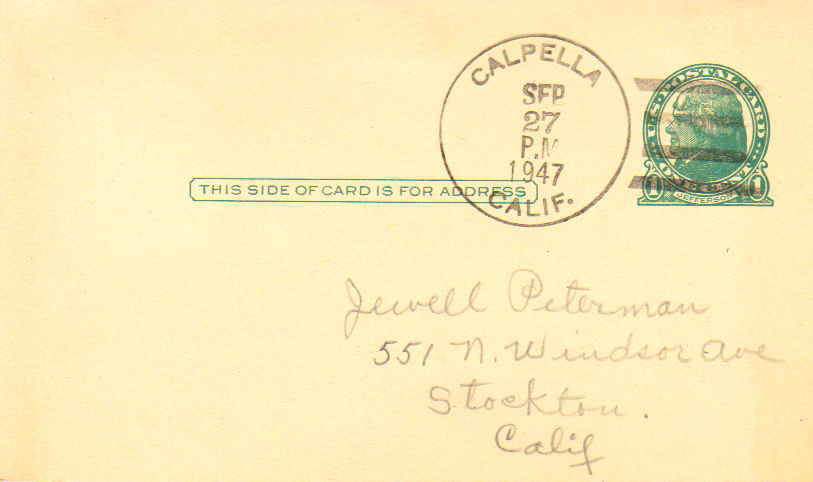 CALPELLA
SEP
27
P.M
1947
CALIF.
U.S. POSTAL CARD
ONE CENT
1 1
JEFFERSON
THIS SIDE OF CARD IS FOR ADDRESS
Jewell Peterman
551 N. Windsor Ave
Stockton.
Calif